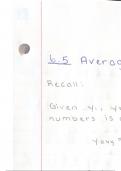 6.5 Averag
Recall:
Given y₁, y
numbers is
yavg =